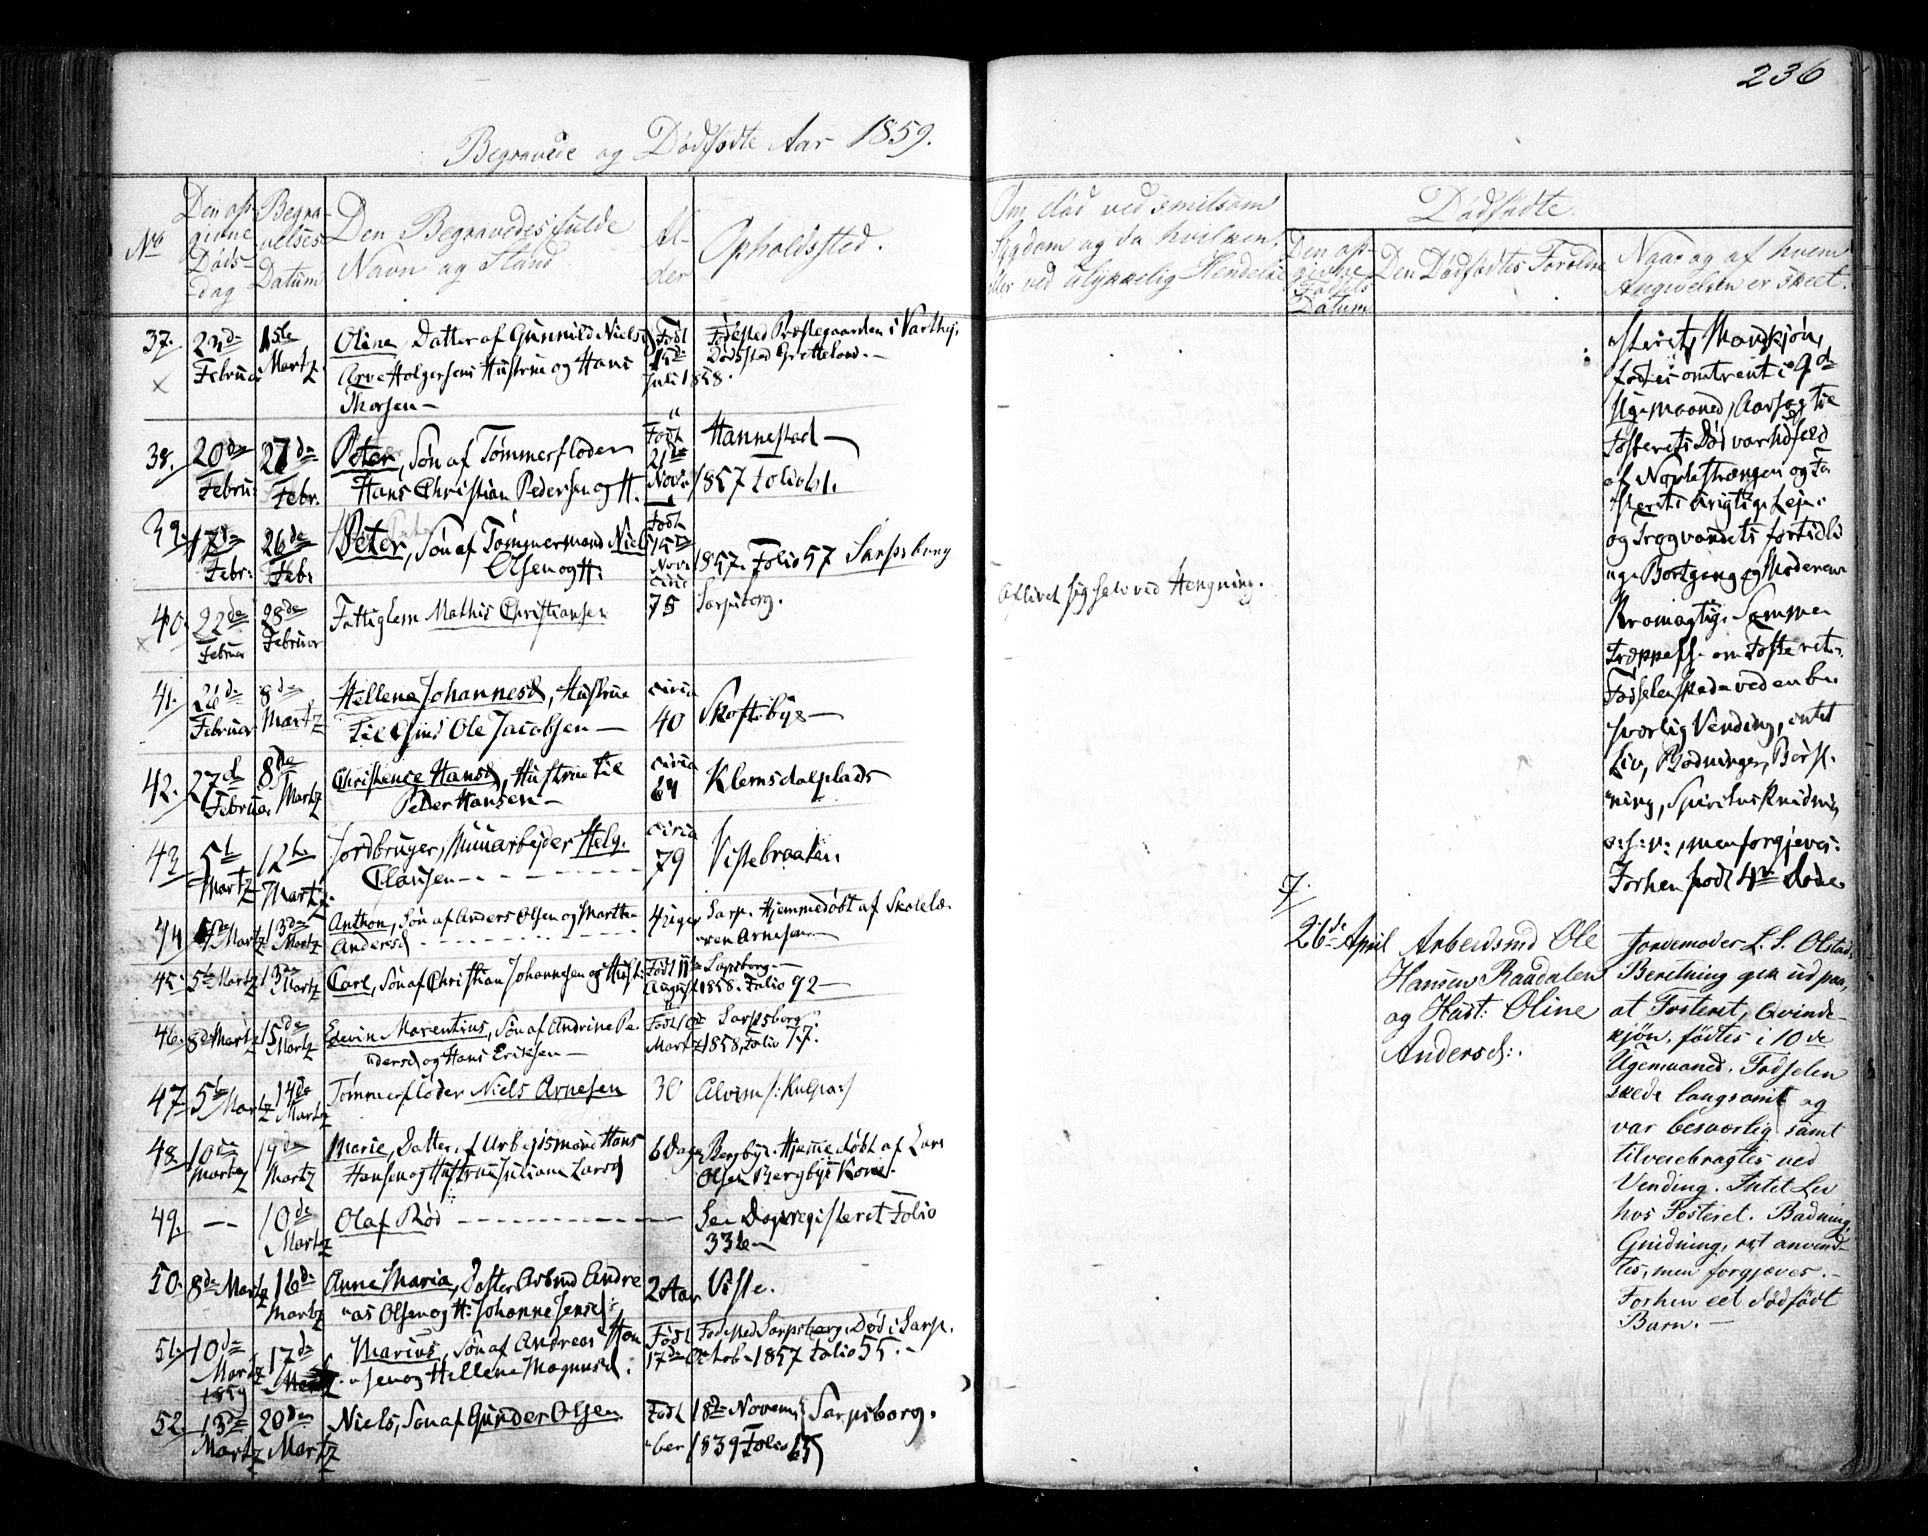 236
Begravede og Dødfødte Aar 1859.
No
Den opgivne Dødsdag
Begravelses Datum
Den Begravedes fulde Navn og Stand
Alder
Opholdssted.
Om død ved smitsom
Sygdom og da hvilken,
eller ved ulykkelig Hendelse
Dødfødte.
Den opgivne Fødsels Datum
Den Dødfødtes Forældre
Naar og af hvem
Angivelsen er skeet.
37. 23de Februar 1ste Martz Oline, Datter af Gunnild Nielsd Født 15de Juli 1858. Fødested Præstegaarden i Varthej:
Arve Holgersens Hustrue og Hans Dødssted Grettelond.
Thorsen —
38. 20de Febru: 27de Febr. Peter, Søn af Tømmerfloder Født 21de Novr 1857 Folio 61. Hannestad —
Hans Christian Pedersen og H.
39. 17de Febr: 26de Febr Peter, Søn af Tømmermand Niels Født 15de Nov: 1857. Folio 57 Sarpsborg
Olsen og H:
40. 22de Februar 28de Februar Fattiglem Mathis Christiansen circa 75 Sarpsborg.
Aflivet sig selv ved Hengning.
41. 26de Februar 8de Martz Hellene Johannesd, Hustrue circa 40 Skoftebye —
til Hsmd Ole Jacobsen —
42. 27d Februar 8de Martz Christence Hansd, Hustrue til circa 64 Klemsdalplads
Peder Hansen —
43. 5te Martz 12te Martz. Jordbruger, Muurarbejder Helg. circa 79 Vistebraaten.
Clausen
44 5de Martz 13de Martz Anthon, Søn af Anders Olsen og Marthe 4 Uger Sarp. Hjemmedøbt af Skolelæ-
Andersd ren Arnesen
45. 5te Martz 13de Martz Carl, Søn af Christian Johannesen og Hust: Født 11te August 1858. Folio 92 — Sarpsborg —
46. 8de Martz 15de Martz Edvin Marentius, Søn af Andrine Pe- Født 10de Martz 1858, Folio 77. Sarpsborg.
dersd og Hans Eriksen —
47. 5te Martz 14de Martz Tømmerfloder Niels Arnesen 30 Alvim /: Kulpa:/
48. 10de Martz 19de Martz Marie, Datter af Arbejdsmand Hans 6 Dage Bergbye. Hjemmedøbt af Lars
Hansen og Hustrue Juliane Larsd Olsen Bergbyes Kone.
49. — 10de Martz Olaf Rød Se Døpregisteret Folio
336 —
50. 8de Martz 16de Martz Anne Maria, Datter Arbmd Andre 2 Aar Viste.
as Olsen og H: Johanne Jensd:
51. 10de Martz 1859 17de Martz Marius, Søn af Andreas Han Født 17de Octob. 1857 Folio 55. — Fødested Sarpsborg. Død i Sarp.
sen og Hellene Magnusd:
52. 13de Martz 20de Martz Niels, Søn af Gunder Olsen Født 18de Novem Sarpsborg.
ber 1839 Folio 65
Fosteret, Mandkjøn,
fødtes omtrent i 9de
Ugemaaned, Aarsag til
Fosterets Død var Udfeld
af Navlestrængen og Fo
sterets urigtige Leje.
og Fragvandets fortidli
uge Bortgang og Moderens
Kramagtige Sammen
træppels. om Fosterets
Fødselen skede ved en be
sværlig Vending, intet
Liv, Badninger, Børst.
ning, Spirituskridning
o: s: v:, men forgjeves.
Forhen født 4re døde.
7.
26de April Arbeidsmd Ole
Hansen Raadalen
og Hust: Oline
Andersd:.
Jordemoder L. S. Olstads
Beretning gik ud paa,
at Fosteret, Qvinde-
kjøn, fødtes i 10de
Ugemaaned. Fødselen
skede langsomt og
var besværlig samt
tilveiebragtes ved
Vending. Intet Liv
hos Fosteret. Badning,
Gnidning, rt anvend-
tes, men forgjæves. —
Forhen eet dødfødt
Barn. —